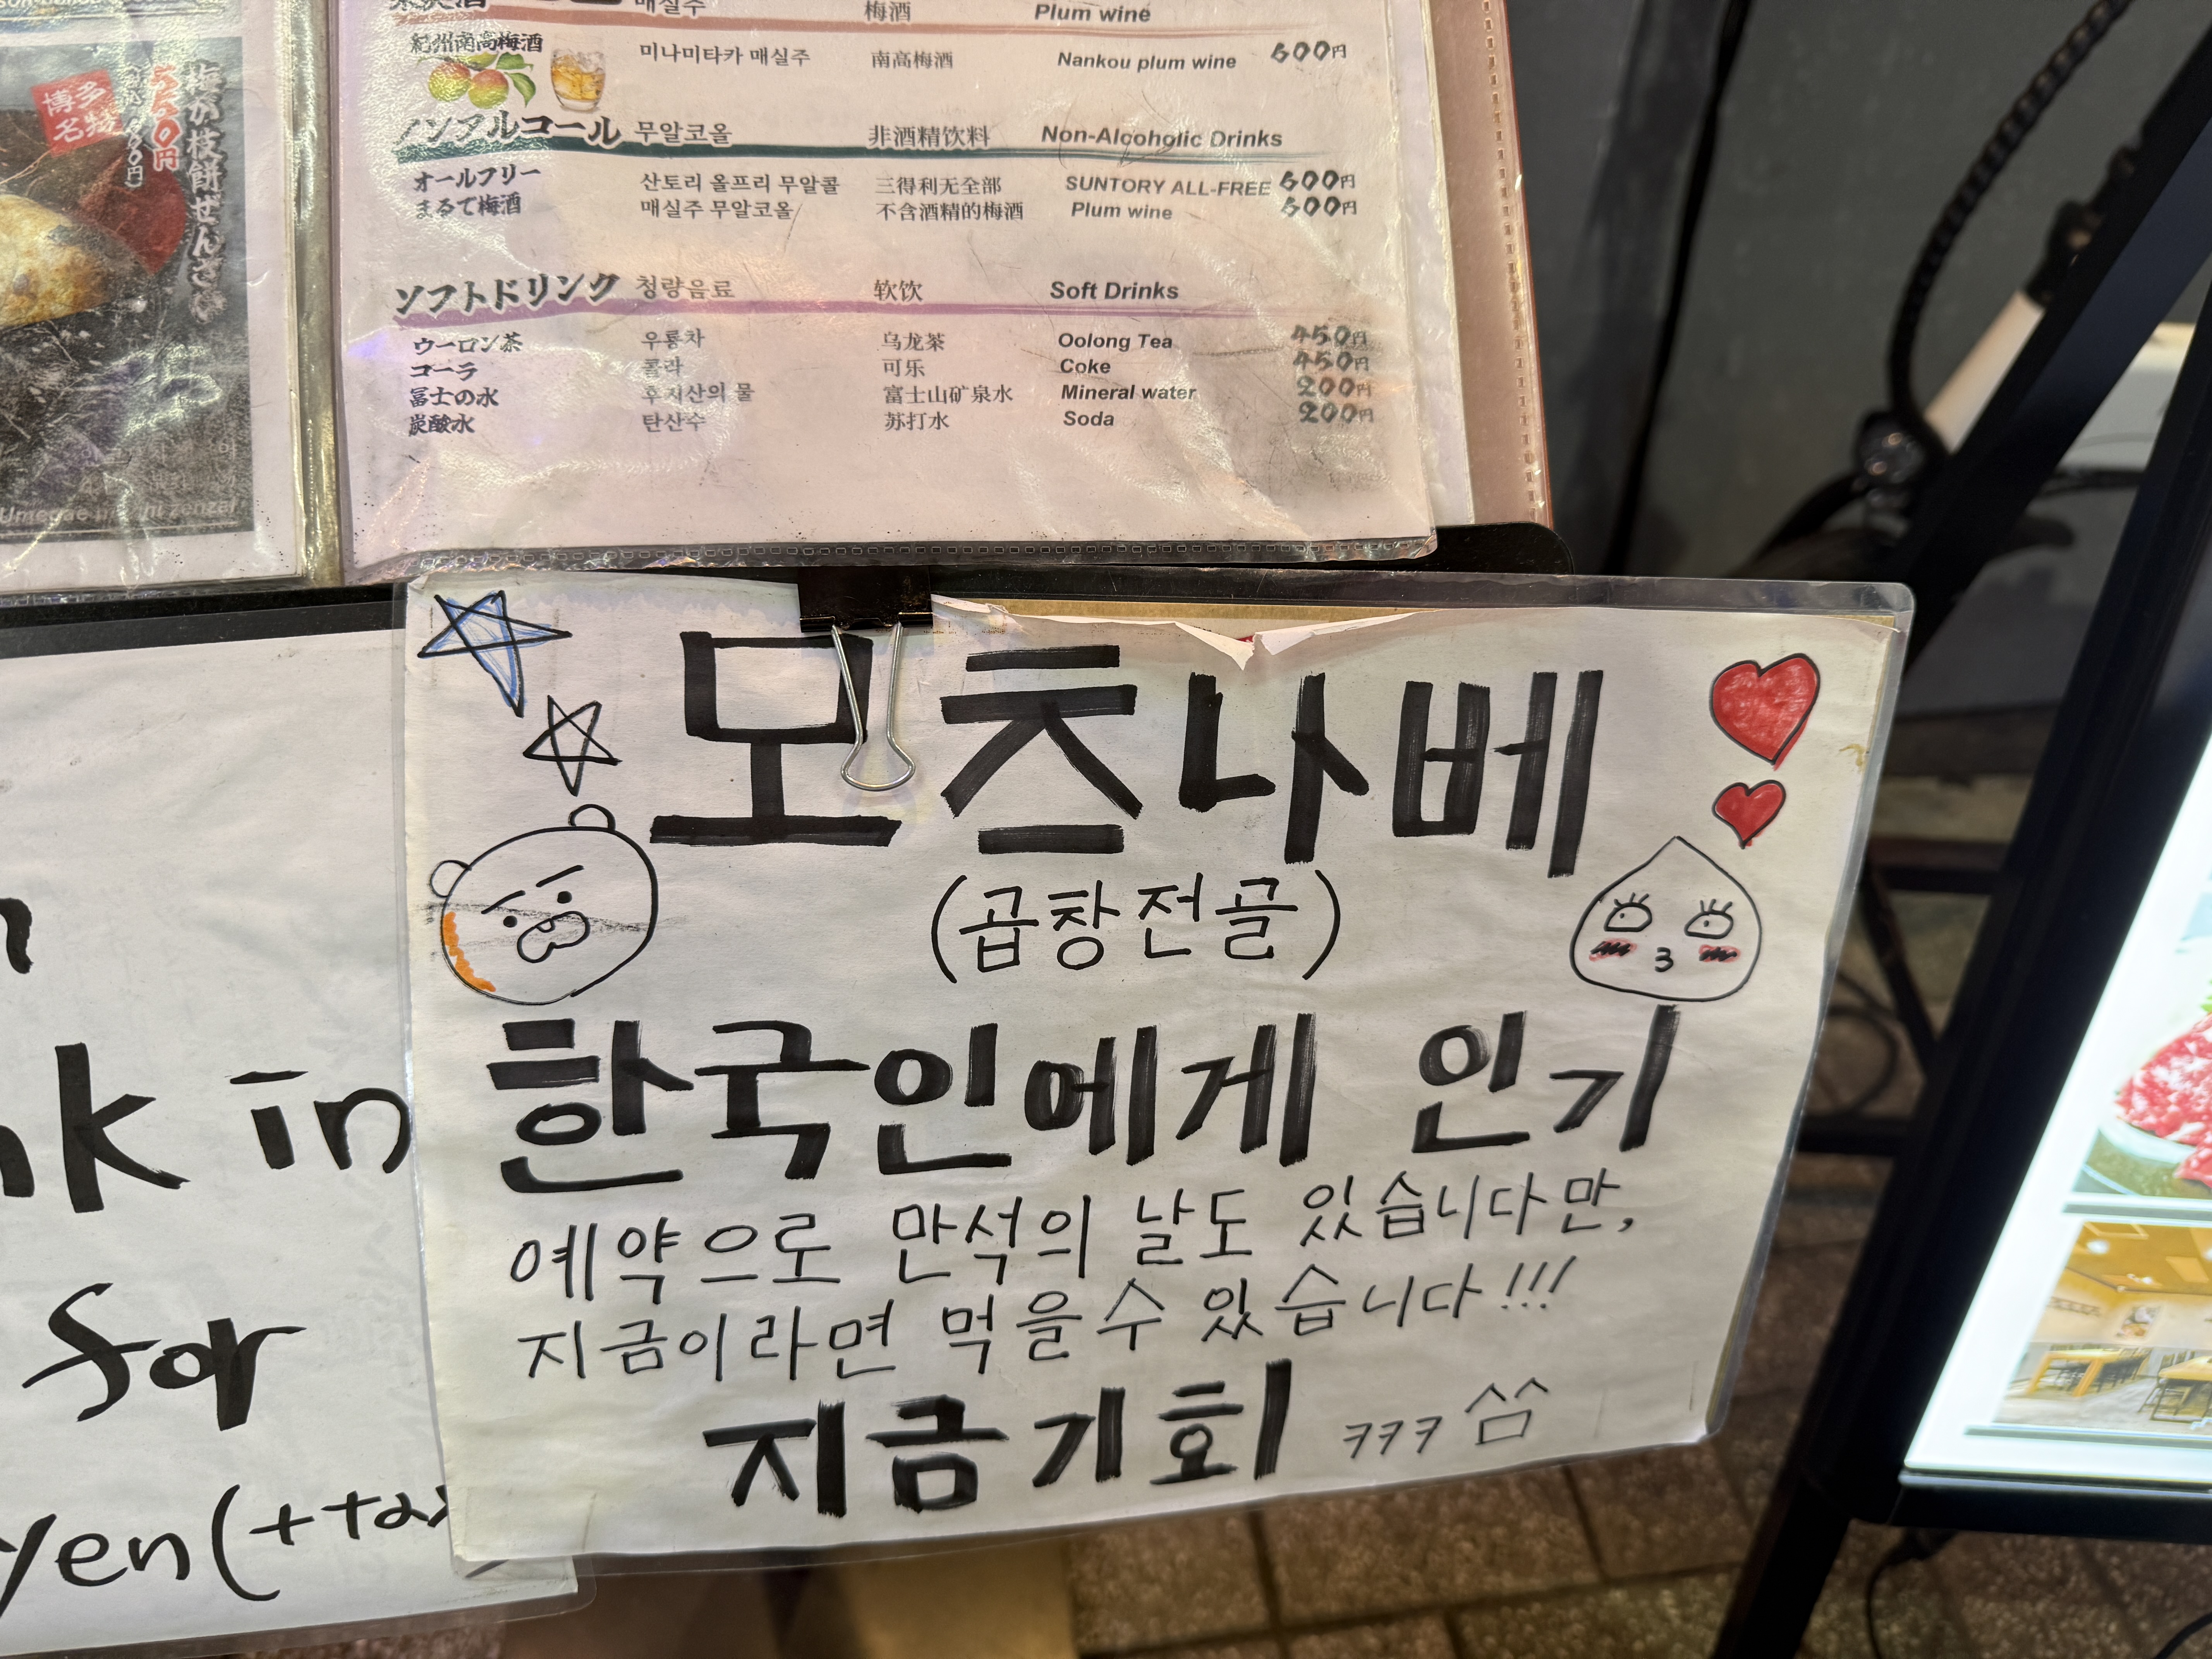 매실주 梅酒 Plum wine
紀州南高梅酒 미나미타카 매실주 南高梅酒 Nankou plum wine 600円
ノンアルコール 무알코올 非酒精饮料 Non-Alcoholic Drinks
オールフリー 산토리 올프리 무알콜 三得利无全部 SUNTORY ALL-FREE 600円
まるで梅酒 매실주 무알코올 不含酒精的梅酒 Plum wine 600円
ソフトドリンク 청량음료 软饮 Soft Drinks
ウーロン茶 우롱차 乌龙茶 Oolong Tea 450円
コーラ 콜라 可乐 Coke 450円
富士の水 후지산의 물 富士山矿泉水 Mineral water 200円
炭酸水 탄산수 苏打水 Soda 200円
博多
名物
梅が枝餅ぜんざい
550円
zenzai
모츠나베
(곱창전골)
한국인에게 인기
예약으로 만석의 날도 있습니다만,
지금이라면 먹을수 있습니다!!!
지금기회 ㅋㅋㅋ ^^
in
for
yen(+tax